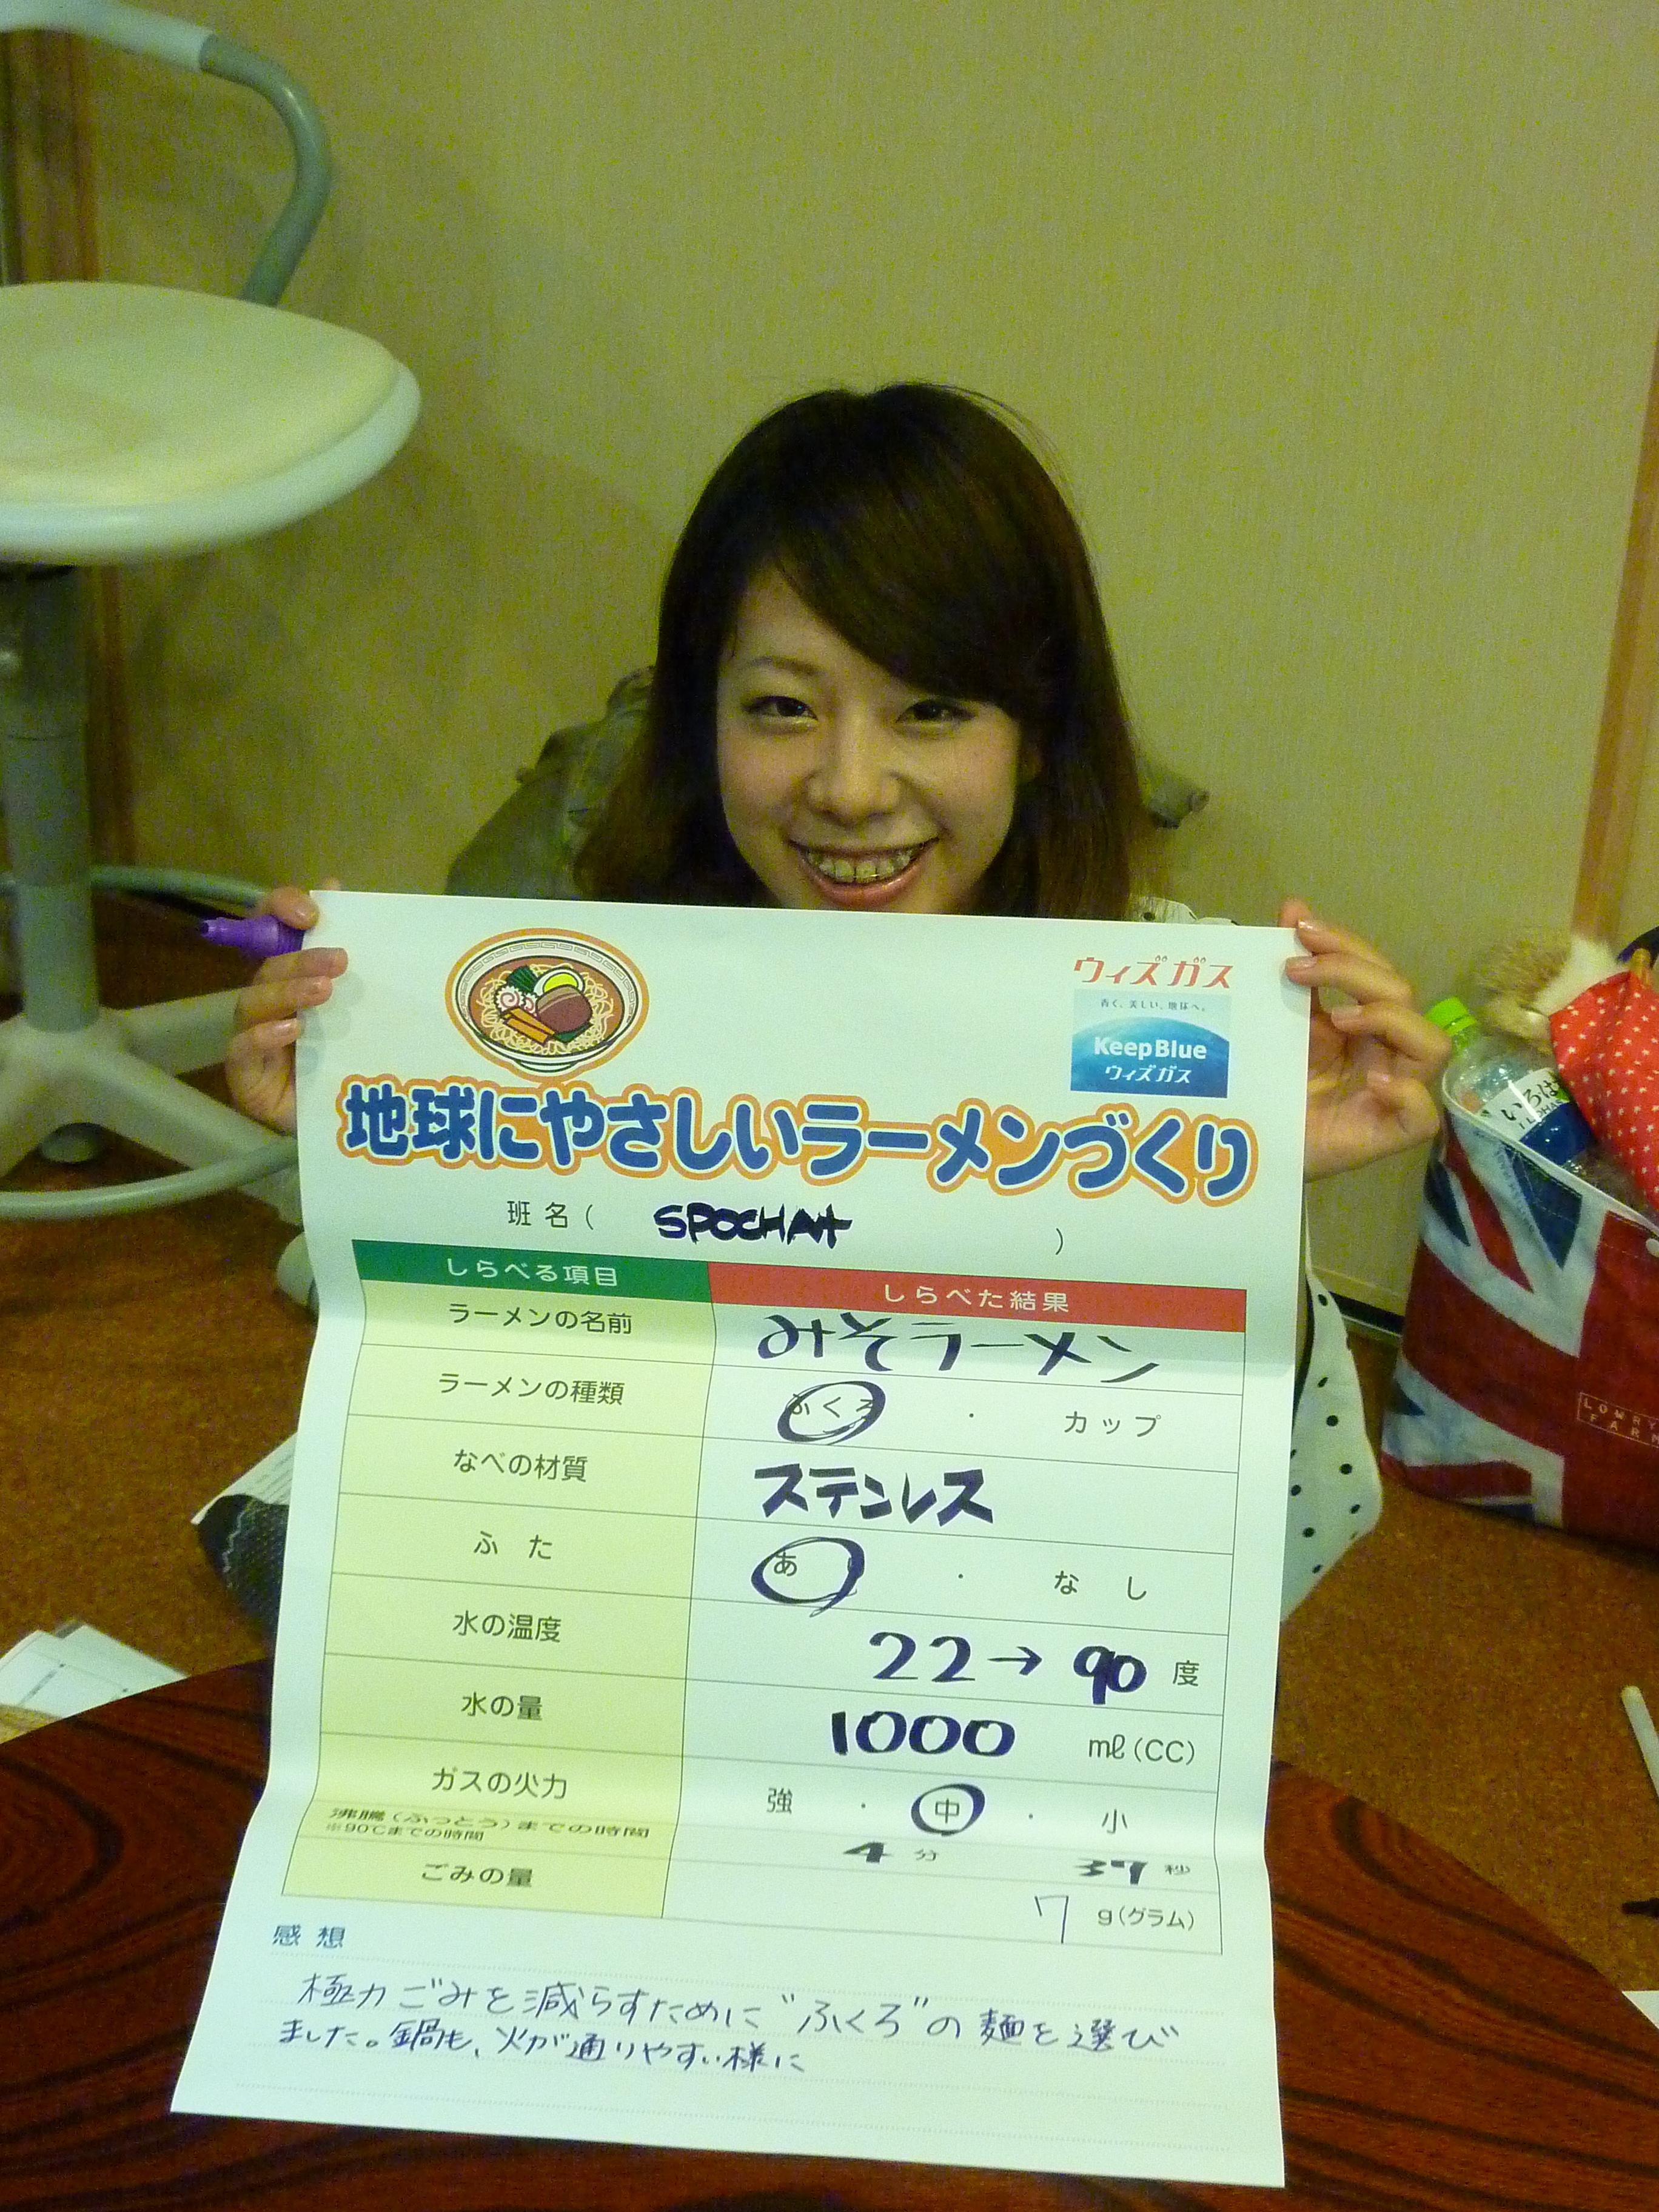 ウィズガス
青く、美しい、地球へ。
KeepBlue
ウィズガス
地球にやさしいラーメンづくり
班名( SPOCHA+ )
しらべる項目 しらべた結果
ラーメンの名前 みそラーメン
ラーメンの種類 ふくろ ・ カップ
なべの材質 ステンレス
ふた あ ・ なし
水の温度 22→90 度
水の量 1000 ml(CC)
ガスの火力 強 ・ 中 ・ 小
沸騰(ふっとう)までの時間 4 分 37 秒
※90℃までの時間
ごみの量 7 g(グラム)
感想
極力ごみを減らすために"ふくろ"の麺を選び
ました。鍋も、火が通りやすい様に
いろは
LOWRYS
FARM